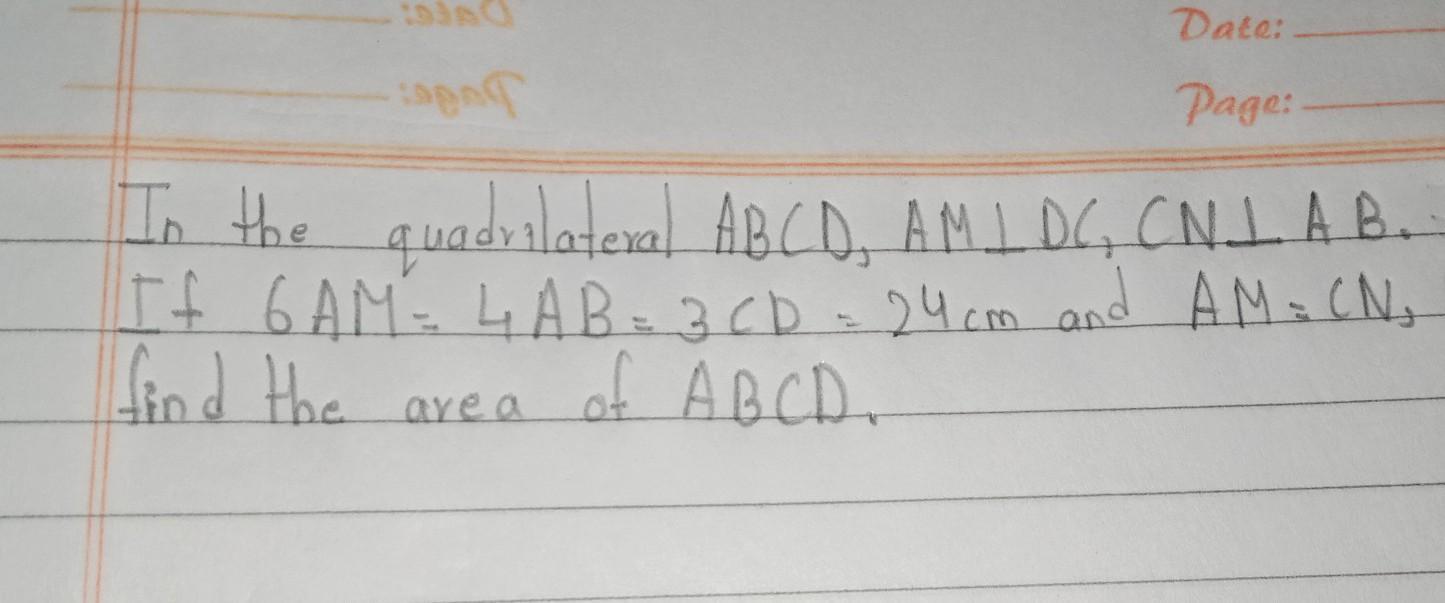 Date:
Page:
Date:
Page:
In the quadrilateral ABCD, AM⊥DC, CN⊥AB.
If 6AM = 4AB = 3CD = 24cm and AM = CN,
find the area of ABCD.